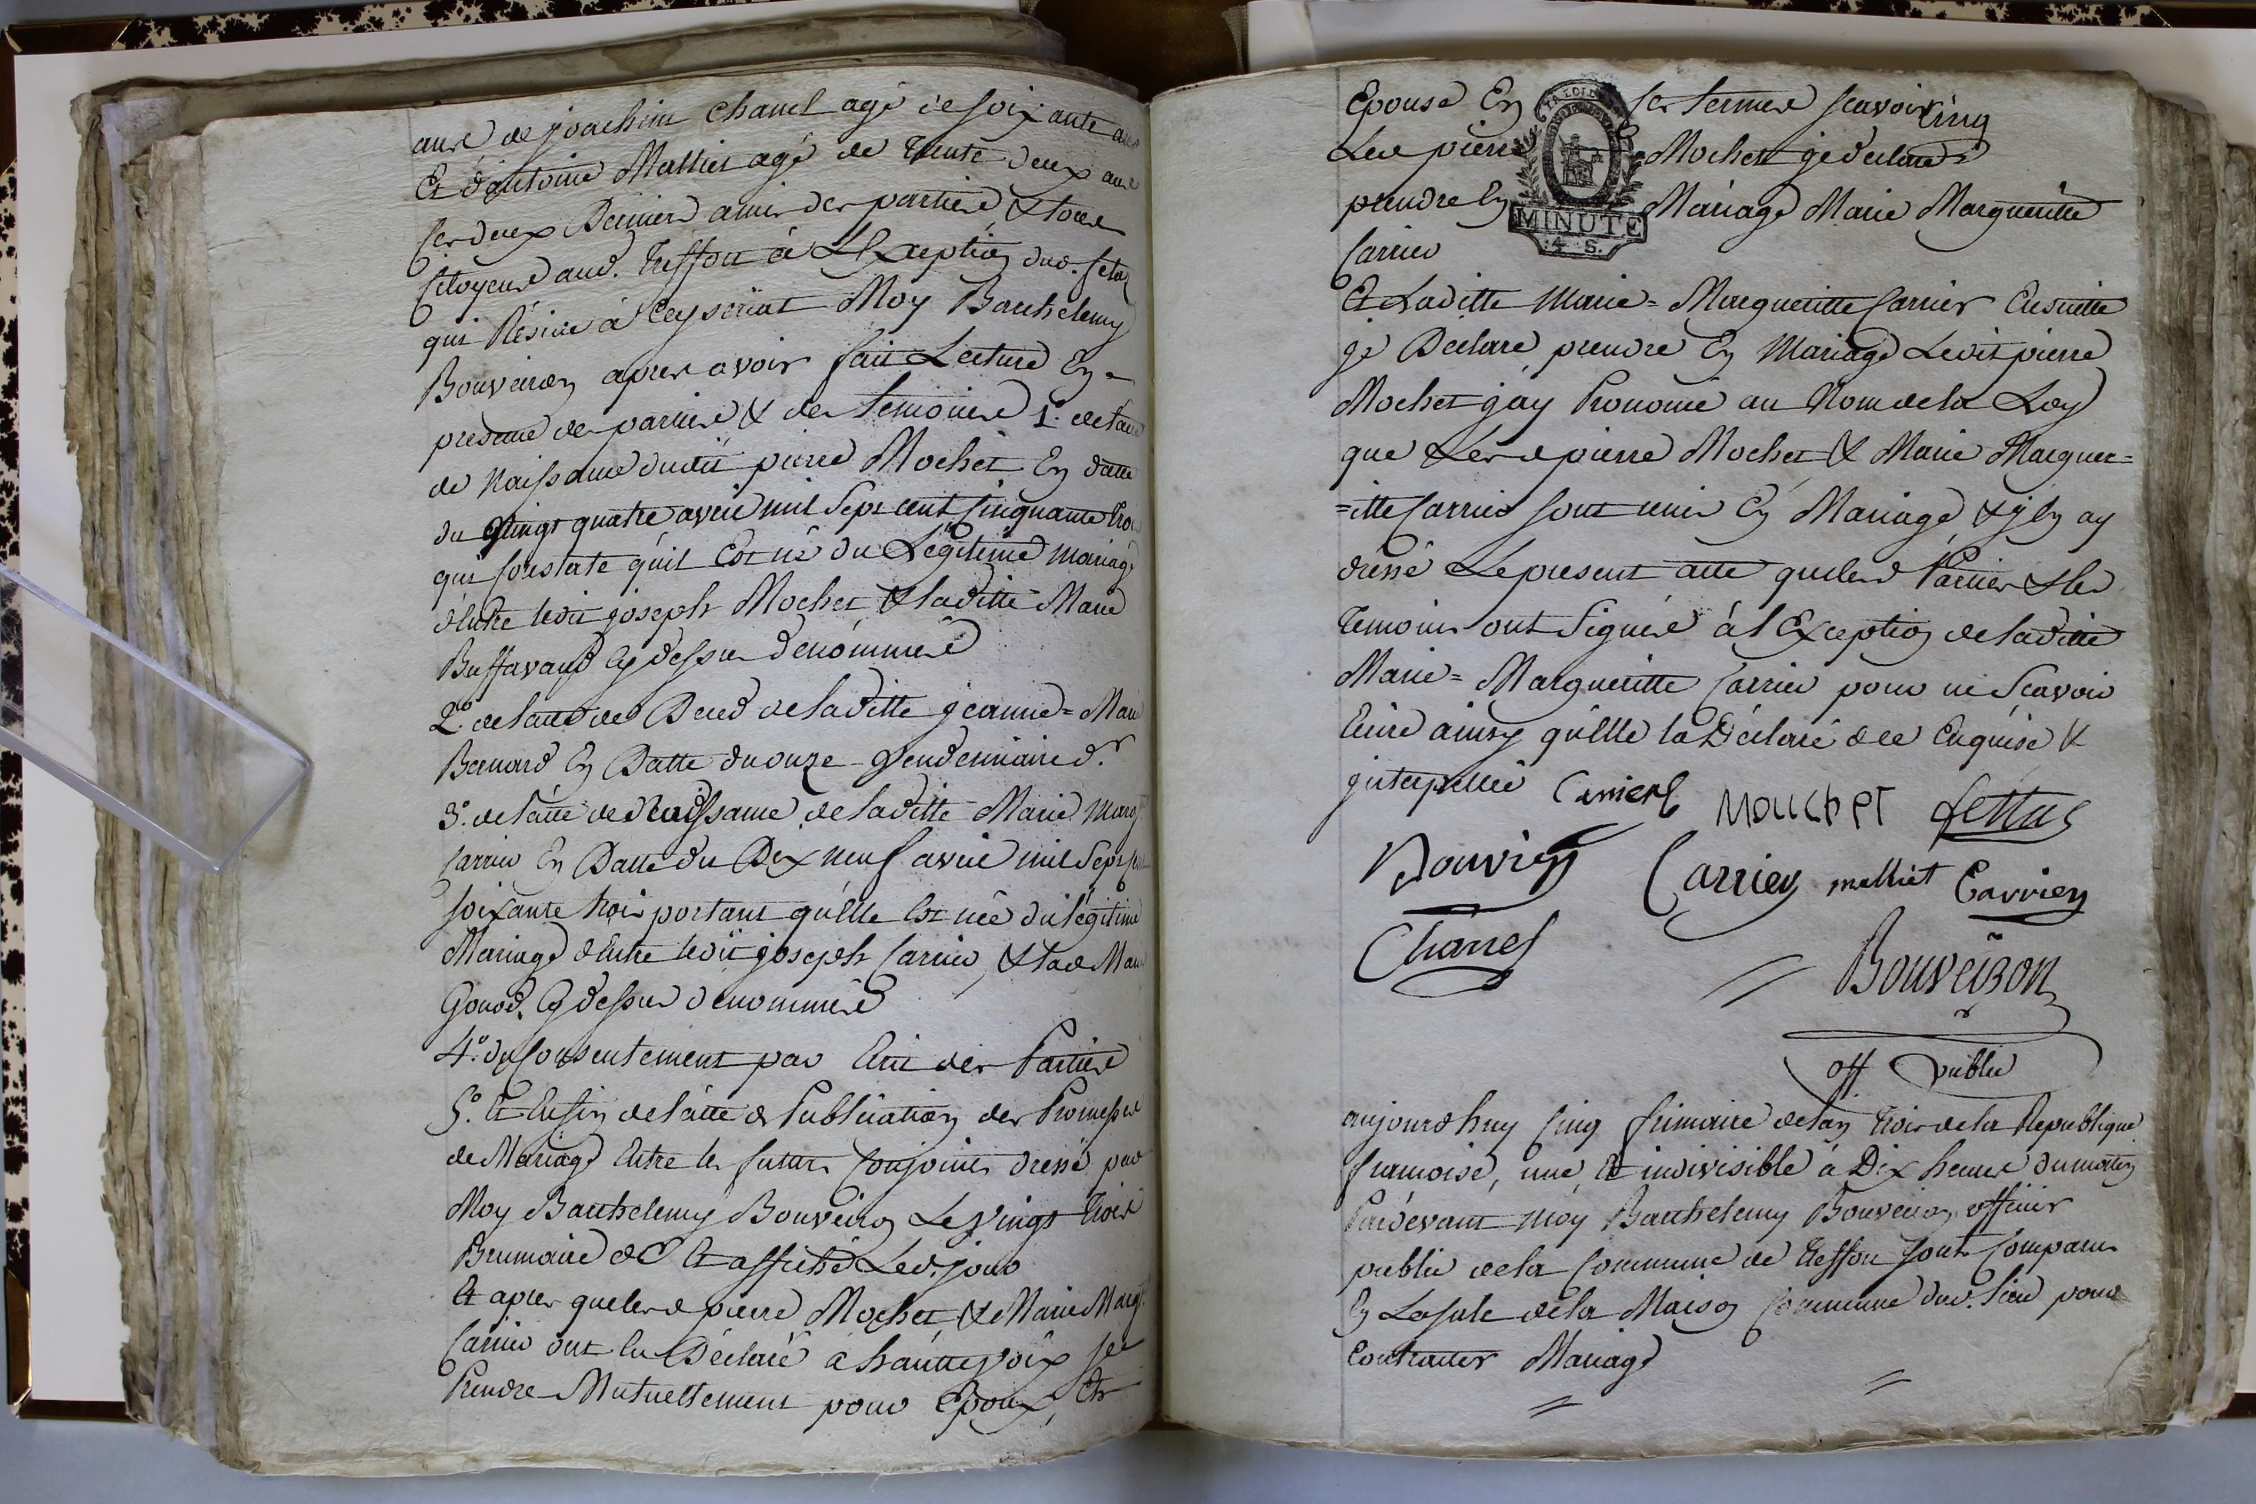 ans de joachim chanel agé de soixante ans
Et d'antoine Malliet agé de trente deux ans
Ces deux Derniers amis des parties & tous
Citoyens aud. Treffort à L'Exception dud.
qui Réside à Ceyseriat Moy Barthelemy
Bouveiron apres avoir fait Lecture En
presence des parties & des temoins 1° de l'acte
de Naissance dudit pierre Mochet En datte
du vingt quatre avril mil Sept cent Cinquante trois
qui Constate qu'il Est né du Legitime mariage
d'Entre ledit joseph Mochet & laditte Marie
Buffavand Cy dessus denommés
2° de l'acte de Deces de laditte jeanne= Marie
Bernard En Datte du onze Vendemiaire dr
3° de l'acte de Naissance de laditte Marie Marg
Carrier En Datte du Dix neuf avril mil Sept cent
soixante trois portant qu'Elle Est née du légitime
Mariage d'Entre ledit joseph Carrier & lad Marie
Gonod Cy dessus denommés
4° du Consentement par Ecrit des Parties
5° Et Enfin de l'acte de Publication des Promesses
de Mariage Entre les futurs Conjoints dressé par
Moy Barthelemy Bouveiron Le Vingt trois
Brumaire d Et affiché Led. jour
Et apres que lesd pierre Mochet & Marie Marg
Carrier ont Eu Déclaré à hautte voix se
Prendre Mutuellement pour Epoux, Et
Epouse En ces termes scavoir
Led pierre Mochet je declare
prendre En Mariage Marie Margueritte
Carrier
MINUTE
4 S.
Et Laditte Marie= Margueritte Carrier Ensuitte
je Declare prendre En Mariage Ledit pierre
Mochet j'ay Prononcé au Nom de la Loy
que Lesd pierre Mochet & Marie Marguer=
=itte Carrier sont unis En Mariage & j'En ay
dressé Le present acte que lesd Parties & les
temoins ont Signés à l'Exception de laditte
Marie= Margueritte Carrier pour ne Scavoir
Ecrire ainsy qu'Elle l'a Déclaré de ce Enquise &
jnterpellée Carrier Mouchet
Bouvier Carrier malliet Carrier
Chanel
Bouveiron
off public
aujourdhuy Cinq frimaire de l'an trois de la Republique
francoise, une, Et indivisible à Dix heures du matin
Pardevant moy Barthelemy Bouveiron officier
public de la Commune de Treffort sont Comparus
En La sale de la Maison Commune dud. lieu pour
Contracter Mariage